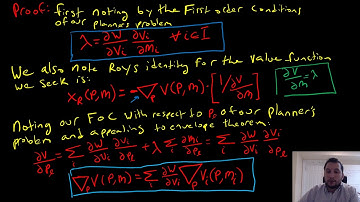 Proof: first noting by the First order conditions
of our planner's problem
λ = ∂W/∂Vi ∂Vi/∂mi ∀i∈I
We also note Roys identity for the value function
we seek is:
x_ℓ(p,m) = -∇_p V(p,m)·[1/∂V/∂m]
∂V/∂m = λ
Noting our FOC with respect to p_ℓ of our planner's
problem and appealing to envelope theorem:
∂V/∂p_ℓ = Σ_i ∂W/∂Vi ∂Vi/∂p_ℓ + λ Σ_i ∂mi/∂p_ℓ = Σ_i ∂W/∂Vi ∂Vi/∂p_ℓ
∇_p V(p,m) = Σ_i ∂W/∂Vi ∇_p Vi(p,mi)